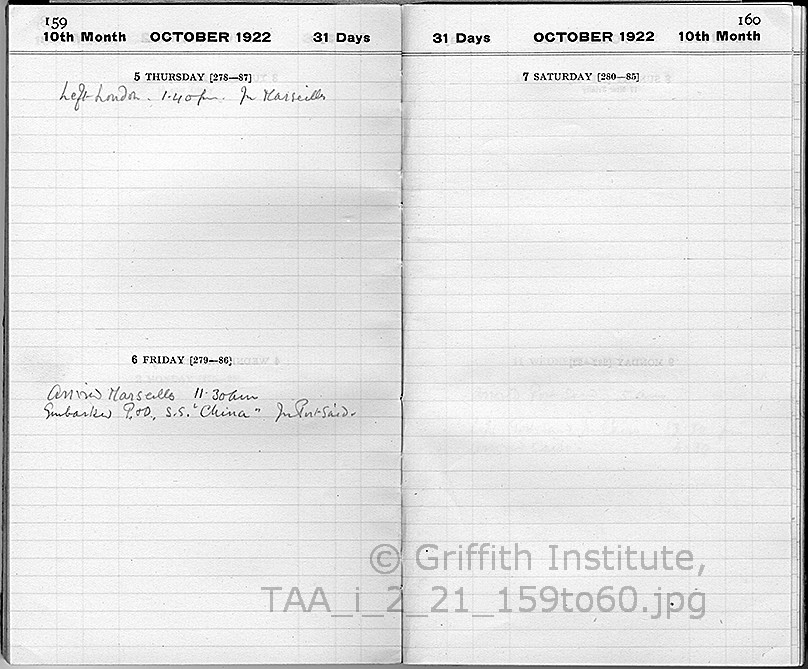 159
10th Month OCTOBER 1922 31 Days
5 THURSDAY [278—87]
Left London. 1.40 pm. for Marseilles
6 FRIDAY [279—86]
Arrived Marseilles 11.30am
Embarked P.&O. S.S. "China" for Port Said.
160
31 Days OCTOBER 1922 10th Month
7 SATURDAY [280—85]
© Griffith Institute,
TAA_i_2_21_159to60.jpg